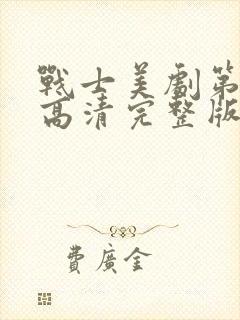 戰士美劇第
高清完整版
費廣金